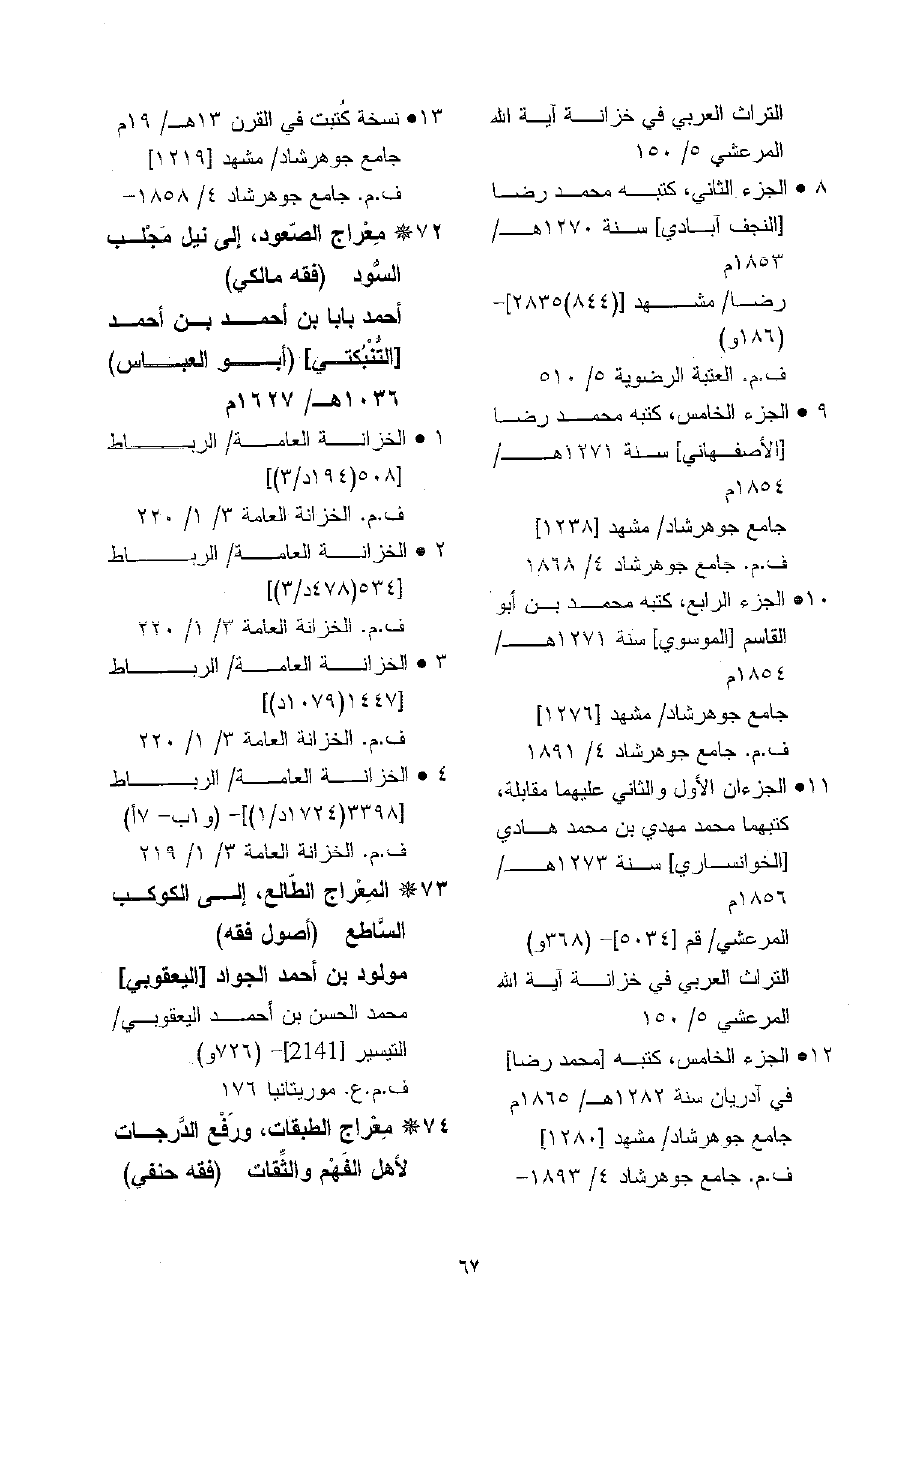 التراث العربي في خزانة آية الله
المرعشي ٥/ ١٥٠
٨ • الجزء الثاني، كتبه محمد رضا
[النجف آبادي] سنة ١٢٧٠هـ/
١٨٥٣م
رضا/ مشهد [(٨٤٤)٢٨٣٥]-
(١٨٦و)
ف.م. العتبة الرضوية ٥/ ٥١٠
٩ • الجزء الخامس، كتبه محمد رضا
[الأصفهاني] سنة ١٢٧١هـ/
١٨٥٤م
جامع جوهرشاد/ مشهد [١٢٣٨]
ف.م. جامع جوهرشاد ٤/ ١٨٦٨
١٠• الجزء الرابع، كتبه محمد بن أبو
القاسم [الموسوي] سنة ١٢٧١هـ/
١٨٥٤م
جامع جوهرشاد/ مشهد [١٢٧٦]
ف.م. جامع جوهرشاد ٤/ ١٨٩١
١١• الجزءان الأول والثاني عليهما مقابلة،
كتبهما محمد مهدي بن محمد هادي
[الخوانساري] سنة ١٢٧٣هـ/
١٨٥٦م
المرعشي/ قم [٥٠٣٤]- (٣٦٨و)
التراث العربي في خزانة آية الله
المرعشي ٥/ ١٥٠
١٢• الجزء الخامس، كتبه [محمد رضا]
في آدريان سنة ١٢٨٢هـ/ ١٨٦٥م
جامع جوهرشاد/ مشهد [١٢٨٠]
ف.م. جامع جوهرشاد ٤/ ١٨٩٣-
١٣• نسخة كُتبت في القرن ١٣هـ/ ١٩م
جامع جوهرشاد/ مشهد [١٢١٩]
ف.م. جامع جوهرشاد ٤/ ١٨٥٨-
٧٢* مِعْراج الصّعود، إلى نيل مَجْلب
السُّود (فقه مالكي)
أحمد بابا بن أحمد بن أحمد
[التُّنْبُكتي] (أبو العباس)
١٠٣٦هـ/ ١٦٢٧م
١ • الخزانة العامة/ الرباط
[٥٠٨(١٩٤د/٣)]
ف.م. الخزانة العامة ٣/ ١/ ٢٢٠
٢ • الخزانة العامة/ الرباط
[٥٣٤(٤٧٨د/٣)]
ف.م. الخزانة العامة ٣/ ١/ ٢٢٠
٣ • الخزانة العامة/ الرباط
[١٤٤٧(١٠٧٩د)]
ف.م. الخزانة العامة ٣/ ١/ ٢٢٠
٤ • الخزانة العامة/ الرباط
[٣٣٩٨(١٧٢٤د/١)]- (و١ب- ٧أ)
ف.م. الخزانة العامة ٣/ ١/ ٢١٩
٧٣* المِعْراج الطّالع، إلى الكوكب
السَّاطع (أصول فقه)
مولود بن أحمد الجواد [اليعقوبي]
محمد الحسن بن أحمد اليعقوبي/
التيسير [2141]- (٧٢٦و)
ف.م.ع. موريتانيا ١٧٦
٧٤* مِعْراج الطبقات، ورَفْع الدَّرجات
لأهل الفَهْم والثِّقات (فقه حنفي)
٦٧